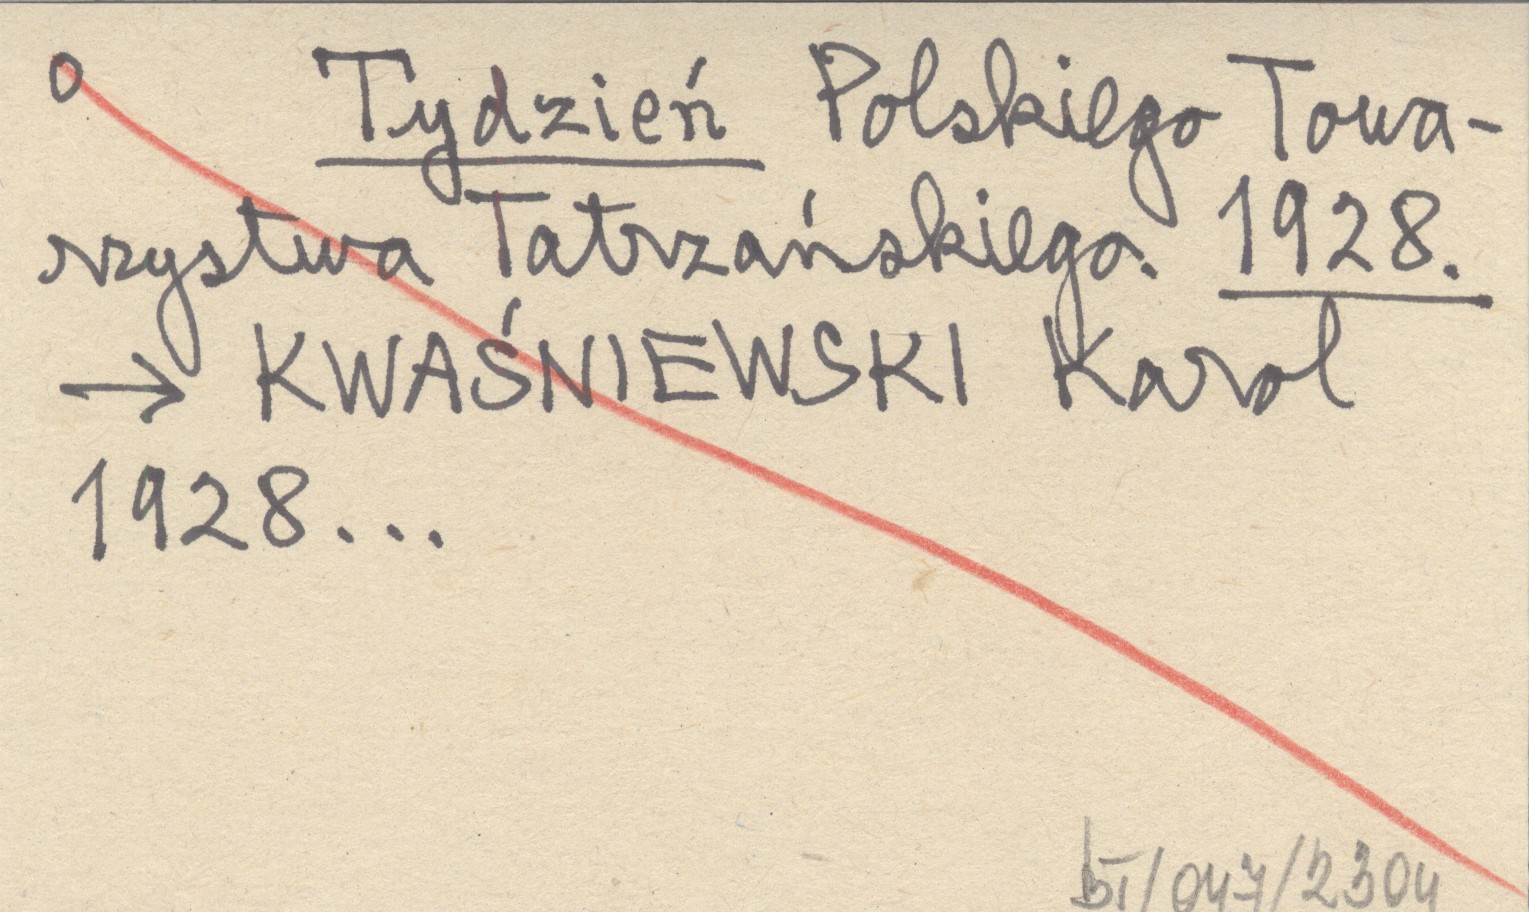 0 Tydzień Polskiego Towa-
rzystwa Tatrzańskiego. 1928.
→ KWAŚNIEWSKI Karol
1928...
bI/047/2304